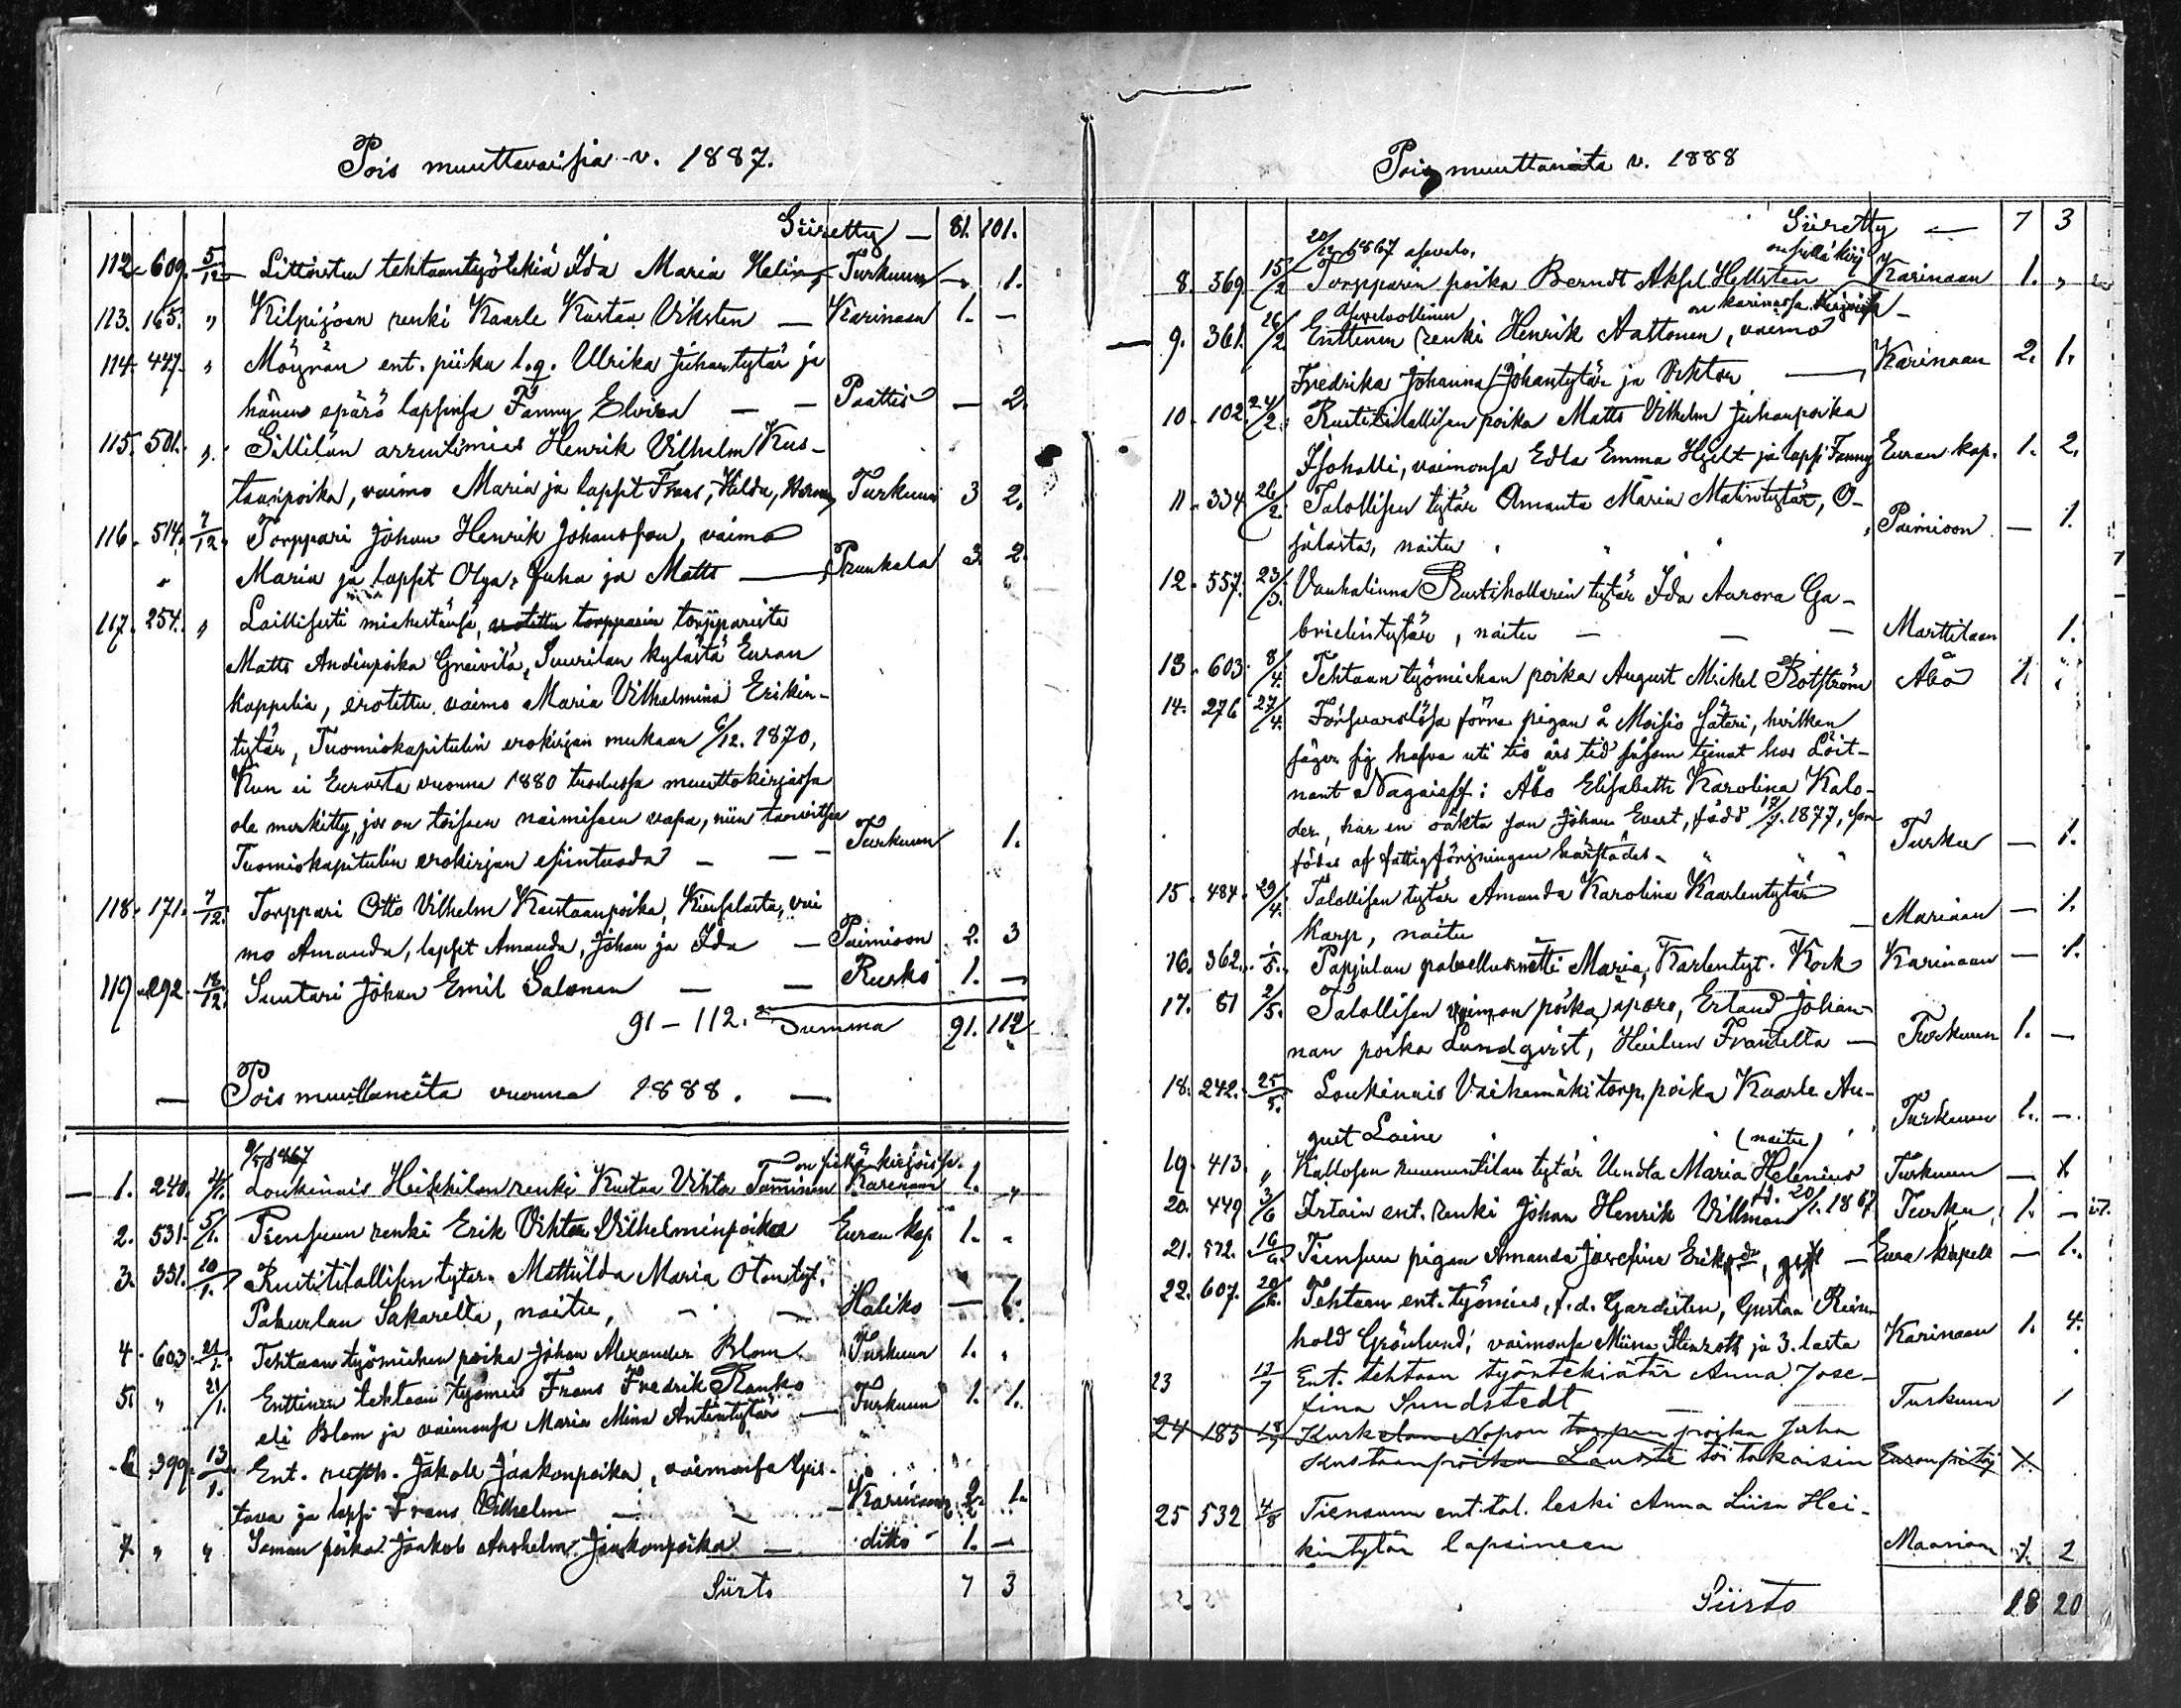 Pois muuttavaisia v. 1887.
Siiretty — 81. 101.
112. 609. 5/12 Littoisten tehtaantyötekiä Ida Maria Helin, Turkuun — 1.
113. 165. " Kilpijoen renki Kaarle Kustaa Viksten — Karinaan 1. —
114. 447. " Möynän ent. piika l.q. Ulrika Juhantytär ja
hänen epärö lapsensa Fanny Elvira — — Paattis — 2.
115. 501. " Sillilän arrentimies Henrik Vilhelm Kus-
taanpoika, vaimo Maria ja lapset Frans, Hilda, Turkuun 3 2.
116. 514. 7/12. Torppari Johan Henrik Johansson, vaimo
Maria ja lapset Olga, Juha ja Matts — Prunkala 3. 2.
117. 254. " Laillisesti miehestänsä, torpparista
Matts Andinpoika Greivilä, Suurilan kylästä Euran
kappelia, erotettu vaimo Maria Vilhelmina Erikin-
tytär, Tuomiokapitulin erokirjan mukaan 6/12. 1870,
Kun ei Eurasta vuonna 1880 tuodussa muuttokirjassa
ole merkitty, jos on toiseen naimiseen vapa, niin
Tuomiokapitulin erokirjan esiintuoda — — — Turkuun 1.
118. 171. 7/12. Torppari Otto Vilhelm Kustaanpoika, vai
mo Amanda, lapset Amanda, Johan ja Ida — Paimioon 2. 3
119. 292. 18/12. Suutari Johan Emil Salonen — — Rusko 1. —
91 — 112. Summa 91. 112
— Pois muuttaneita vuonna 1888. —
1867 on kirjoissa.
— 1. 240. 4/1. Loukinais Heikkilan renki Kustaa Vihtor Tamminen Karinaan 1. "
2. 531. 5/1. Tiensuun renki Erik Vihtor Vilhelminpoika Euran kap 1. "
3. 351. 20/1. Rustitilallisen tytär Mathilda Maria Otontyt.
Pakurlan Sakarella, naitu, — — Haliko — 1.
4. 603. 21/1. Tehtaan työmiehen poika Johan Alexander Blom Turkuun 1. "
5. " 21/1. Enttinen tehtaan työmies Frans Fredrik Ranko
eli Blom ja vaimonsa Maria Mina Antintytär — Turkuun 1. 1.
6. 399. 13/1. Ent. Jakob Jaakonpoika, vaimonsa Gus-
tava ja lapsi Frans Vilhelm — — Karinaan 2. 1.
7. " " Saman poika Jaakob Anshelm Jaakonpoika — ditto 1. —
Siirto 7 3
Pois muuttaneita v. 1888
Siiretty — 7 3
20/12 1867 asevelv.
8. 569 15/2 Torpparin poika Berndt Aksel Hellsten Karinaan 1. "
Asevelvollinen on karinassa kirjoissa
— 9. 361. 26/2. Enttinen renki Henrik Aaltonen, vaimo
Fredrika Johanna Johantytär ja Viktor — Karinaan 2. 1.
10. 102. 24/2. Rustitilallisen poika Matts Vilhelm Juhanpoika
Isohalli, vaimonsa Edla Emma Hjelt ja lapsi Fanny Euran kap. 1. 2.
11. 334 26/2. Talollisen tytär Amanta Maria Matintytär, O-
jalasta, naitu " " " Paimioon — 1.
12. 557. 23/3. Vanhalinna Rustihollarin tytär Ida Aurora Ga-
brielintytär, naitu — — — Marttilaan 1.
13. 603. 8/4. Tehtaan työmiehen poika August Mickel Rotström Åbo 1. "
14. 276 27/4. Försvarslösa förra pigan å Moisio Säteri, hvilken
säger sig hafva uti tio års tid såsom tjenat hos Löit-
nant Nagaieff i Åbo Elisabeth Karolina Kalo-
der, har en oäkta son Johan Evert, född 17/7. 1877, som
födes af fattigförsjningen härstädes " " " Turku — 1.
15. 484. 29/4. Talollisen tytär Amanda Karolina Kaarlentytär
Karp, naitu — Mariaan — 1.
16. 362. 1/5. Papjulan palvellusnetti Maria, Karlentyt. Kock Karinaan — 1.
17. 81 2/5. Talollisen vaimon poika, äpärö, Erland Johan-
nan poika Lundqvist, Heilun Frantilla — Turkuun 1. —
18. 242. 25/5. Loukinais Vaihemäki torp. poika Kaarle Au-
gust Laine " " " Turkuun 1. —
(naitu)
19. 413. " Kallosen ruununtilan tytär Vendla Maria Helenius Turkuun — 1.
20. 449 3/6 Irtain ent. renki Johan Henrik Villman fd. 20/1. 1867 Turku 1. —
21. 572. 16/6. Tiensuu pigan Amanda Josefine Eriksdr, gift — Eura kapell — 1.
22. 607. 20/6. Tehtaan ent. työmies, f.d. Gardisten, Gustaa Rein-
hold Grönlund, vaimonsa Miina Stenroth ja 3. lasta Karinaan 1. 4.
23 17/7 Ent. tehtaan työntekiätär Anna Jose-
fina Sundstedt — Turkuun 1
24 185 18/7 Kurkelan Nopon torpan poika Juha
Kustaanpoika Lauste toi takaisin Euran pitäj X
25 532 4/8 Tiensuun ent. tal. leski Anna Liisa Hei-
kintytär lapsineen Maarian 1. 2
Siirto 18 20